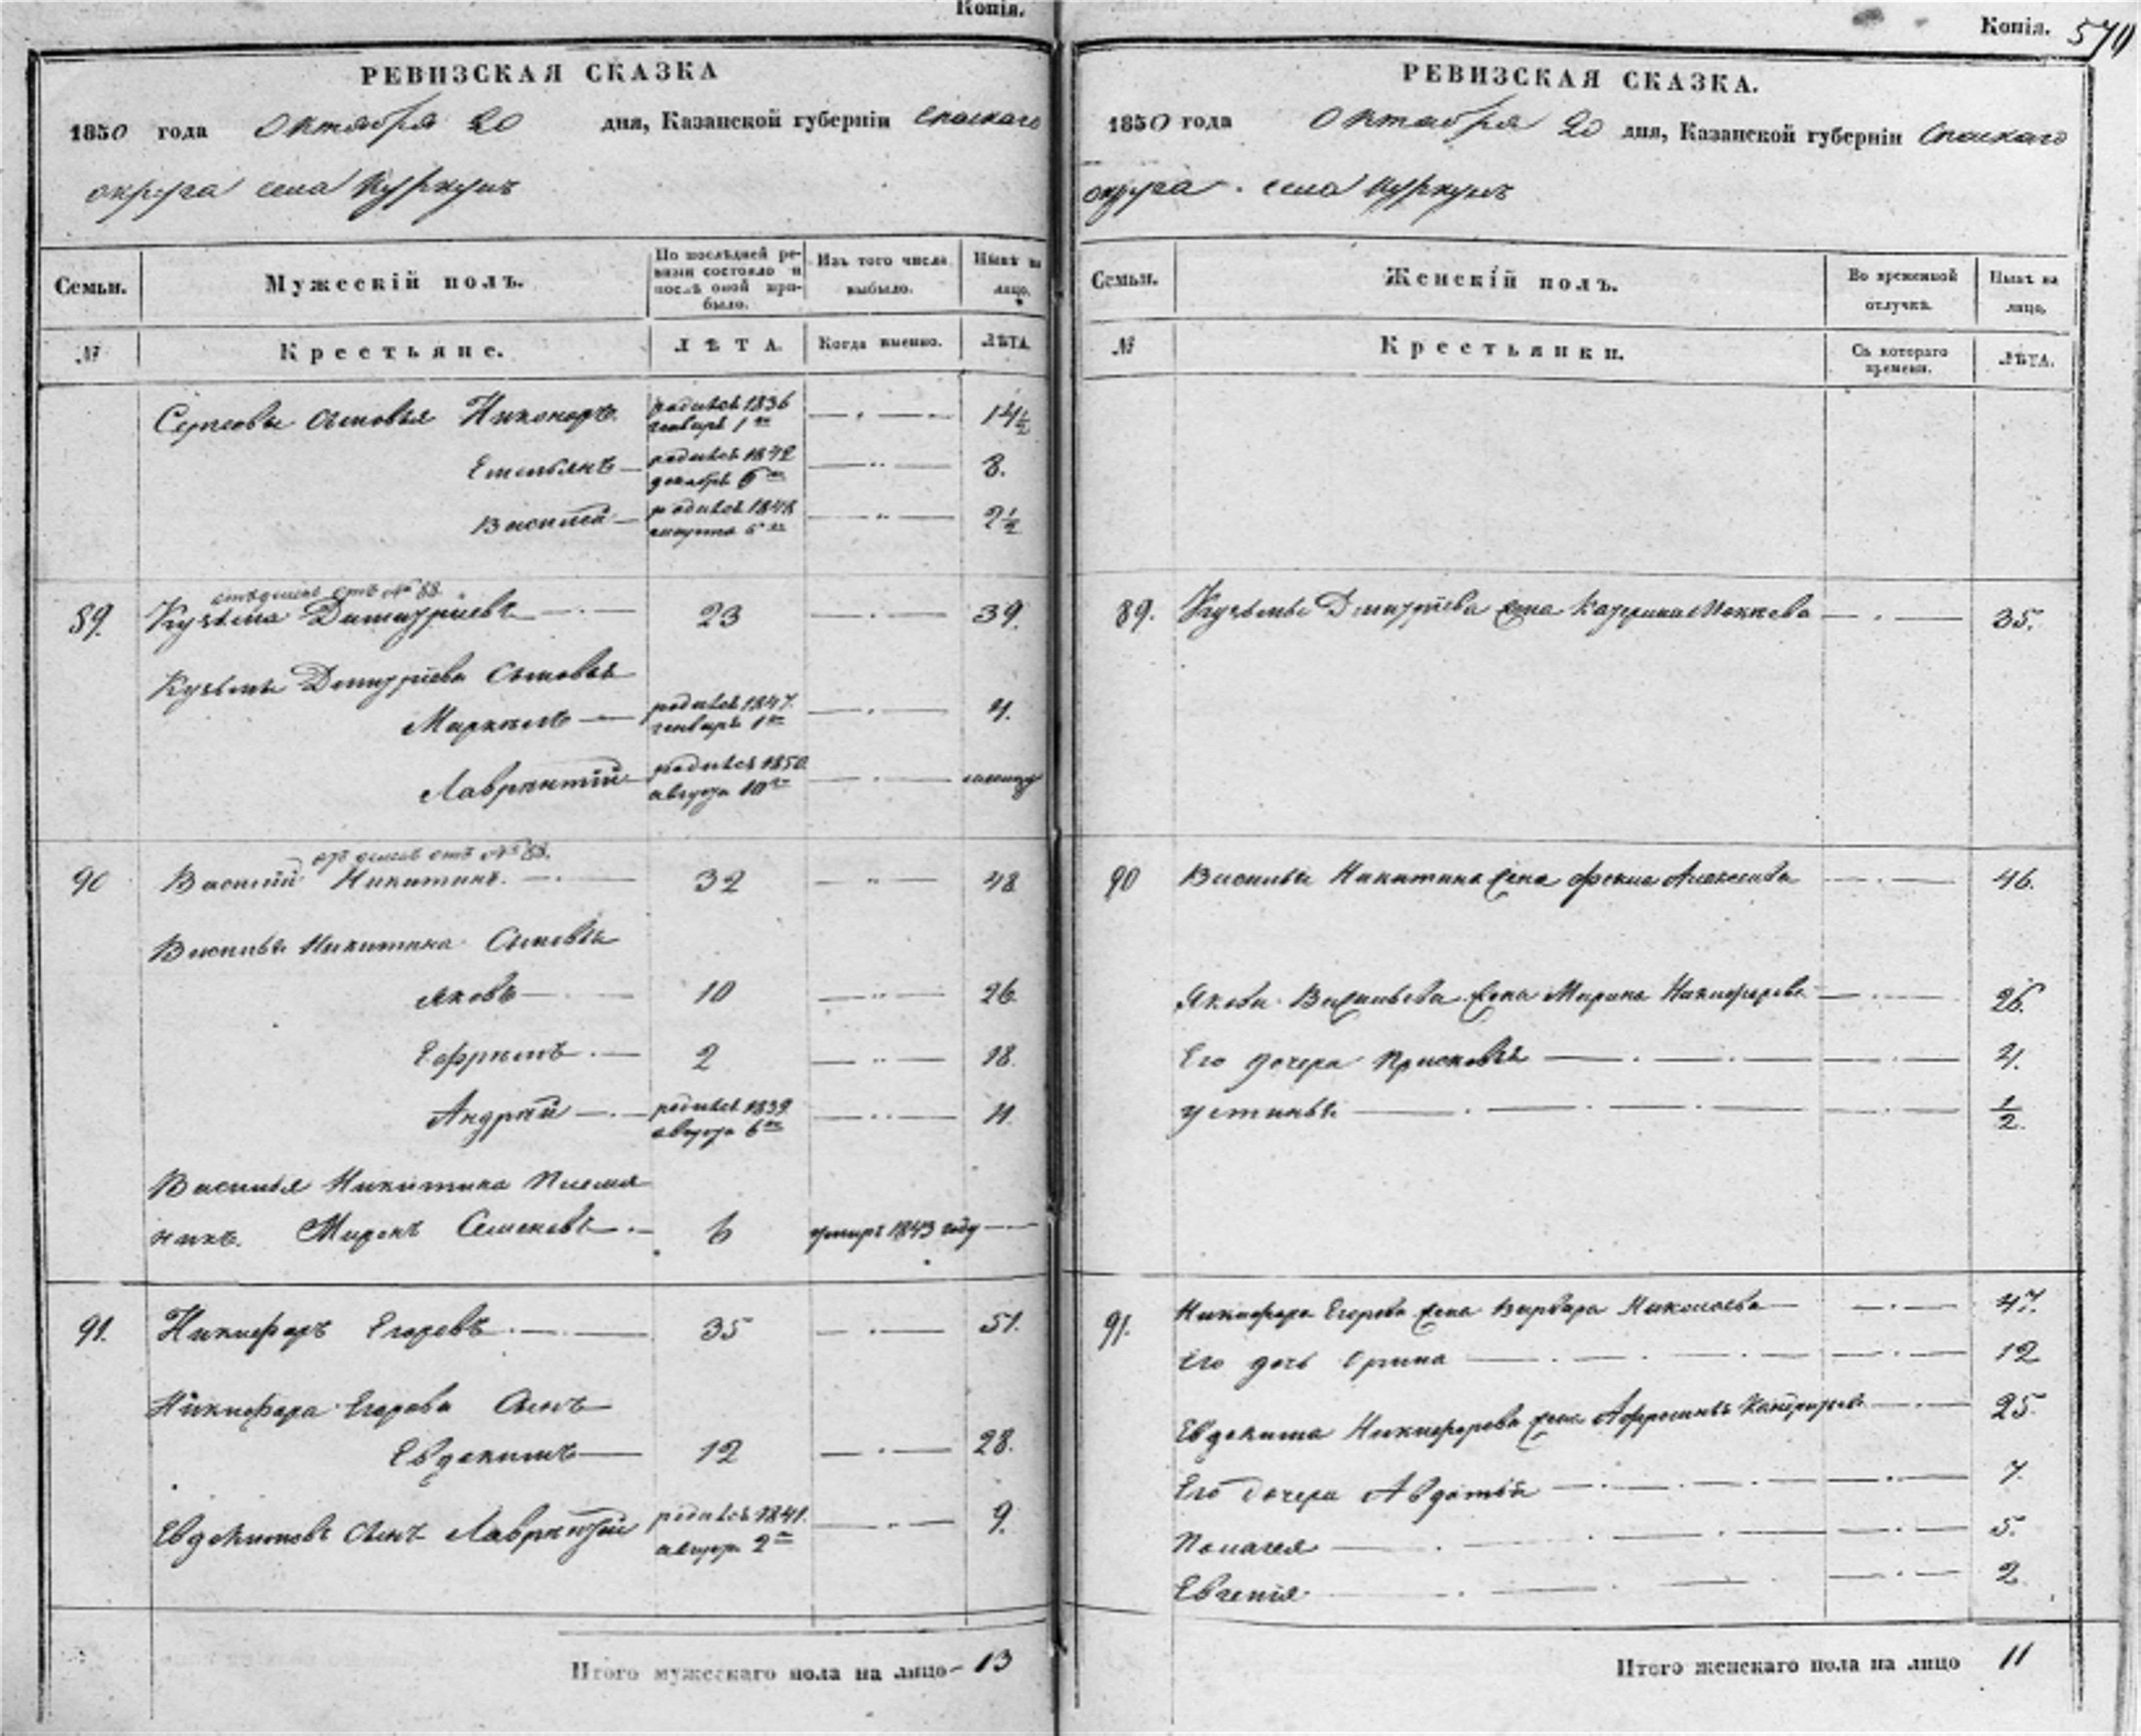 Копія.
РЕВИЗСКАЯ СКАЗКА
1850 года Октября 20 дня, Казанской губерніи Спаскаго
округа села Куркуль
Семьи. Мужескій полъ. По послѣдней ревизіи состояло и послѣ оной прибыло. Изъ того числа выбыло. Нынѣ на лицо.
№ Крестьяне. ЛѢТА. Когда именно. ЛѢТА.
Сергеовы сыновья Никоноръ родился 1836 генваря 1го 14½
Емельянъ родился 1842 декабря 6го 8.
Василій родился 1848 августа 5го 2½
отделился отъ № 88.
89. Кузьма Димитріевъ 23 39.
Кузьмы Димитріева Сыновья
Маркелъ родился 1847. генваря 1го 4.
Лаврентій родился 1850. августа 10го
отделился отъ № 88.
90 Василій Никитинъ. 32 48
Василья Никитина Сыновья
Яковъ 10 26
Ефремъ 2 18.
Андрей родился 1839 августа 6го 11.
Василья Никитина Племян
никъ. Миронъ Семеновъ 6 умеръ 1843 году
91. Никифоръ Егоровъ 35 51.
Никифора Егорова Сынъ
Евдокимъ 12 28.
Евдокимовъ Сынъ Лаврентій родился 1841. августа 2го 9.
Итого мужескаго пола на лицо 13
Копія. 570
РЕВИЗСКАЯ СКАЗКА.
1850 года Октября 20 дня, Казанской губерніи Спаскаго
округа села Куркуль
Семьи. Женскій полъ. Во временной отлучкѣ. Нынѣ на лицо.
№ Крестьянки. Съ котораго времени. ЛѢТА.
89. Кузьмы Димитріева жена Катерина Мокеева 35.
90 Василья Никитина жена Фекла Алексеева 46.
Якова Васильева жена Марина Никифорова 26.
Его дочери Прасковья 4.
Устинья ½.
91. Никифора Егорова жена Варвара Николаева 47.
Его дочь Орина 12
Евдокима Никифорова жена Афросинья Кондратьева 25.
Его дочери Авдотья 7
Полагея 5.
Евгенія 2
Итого женскаго пола на лицо 11